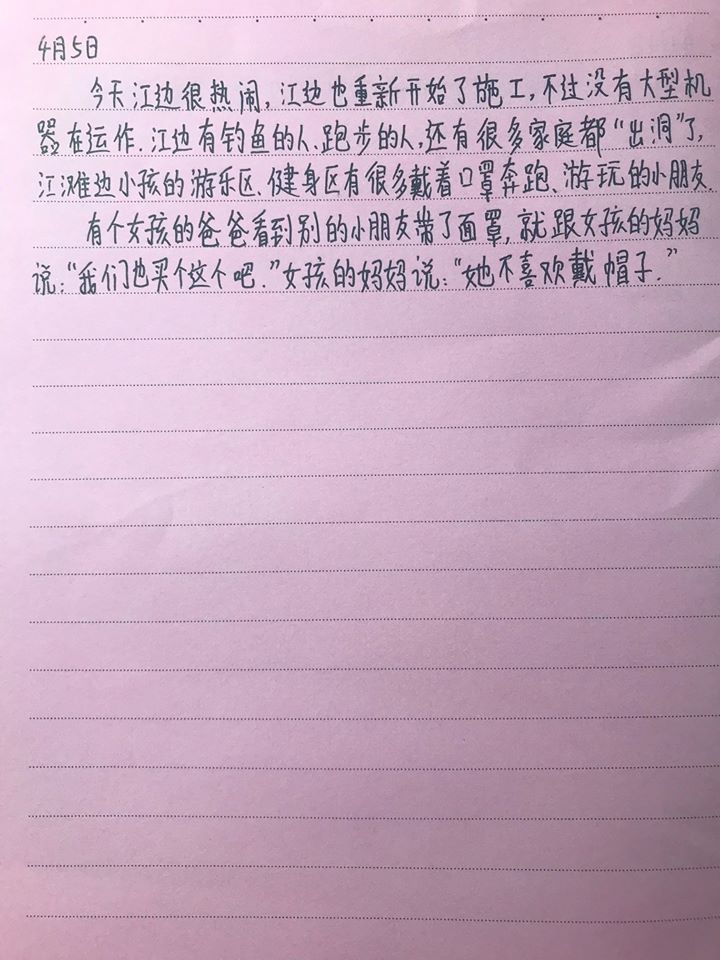 4月5日
今天江边很热闹,江边也重新开始了施工,不过没有大型机
器在运作.江边有钓鱼的人、跑步的人,还有很多家庭都“出洞”了,
江滩边小孩的游乐区、健身区有很多戴着口罩奔跑、游玩的小朋友.
有个女孩的爸爸看到别的小朋友带了面罩,就跟女孩的妈妈
说:“我们也买个这个吧.”女孩的妈妈说:“她不喜欢戴帽子.”